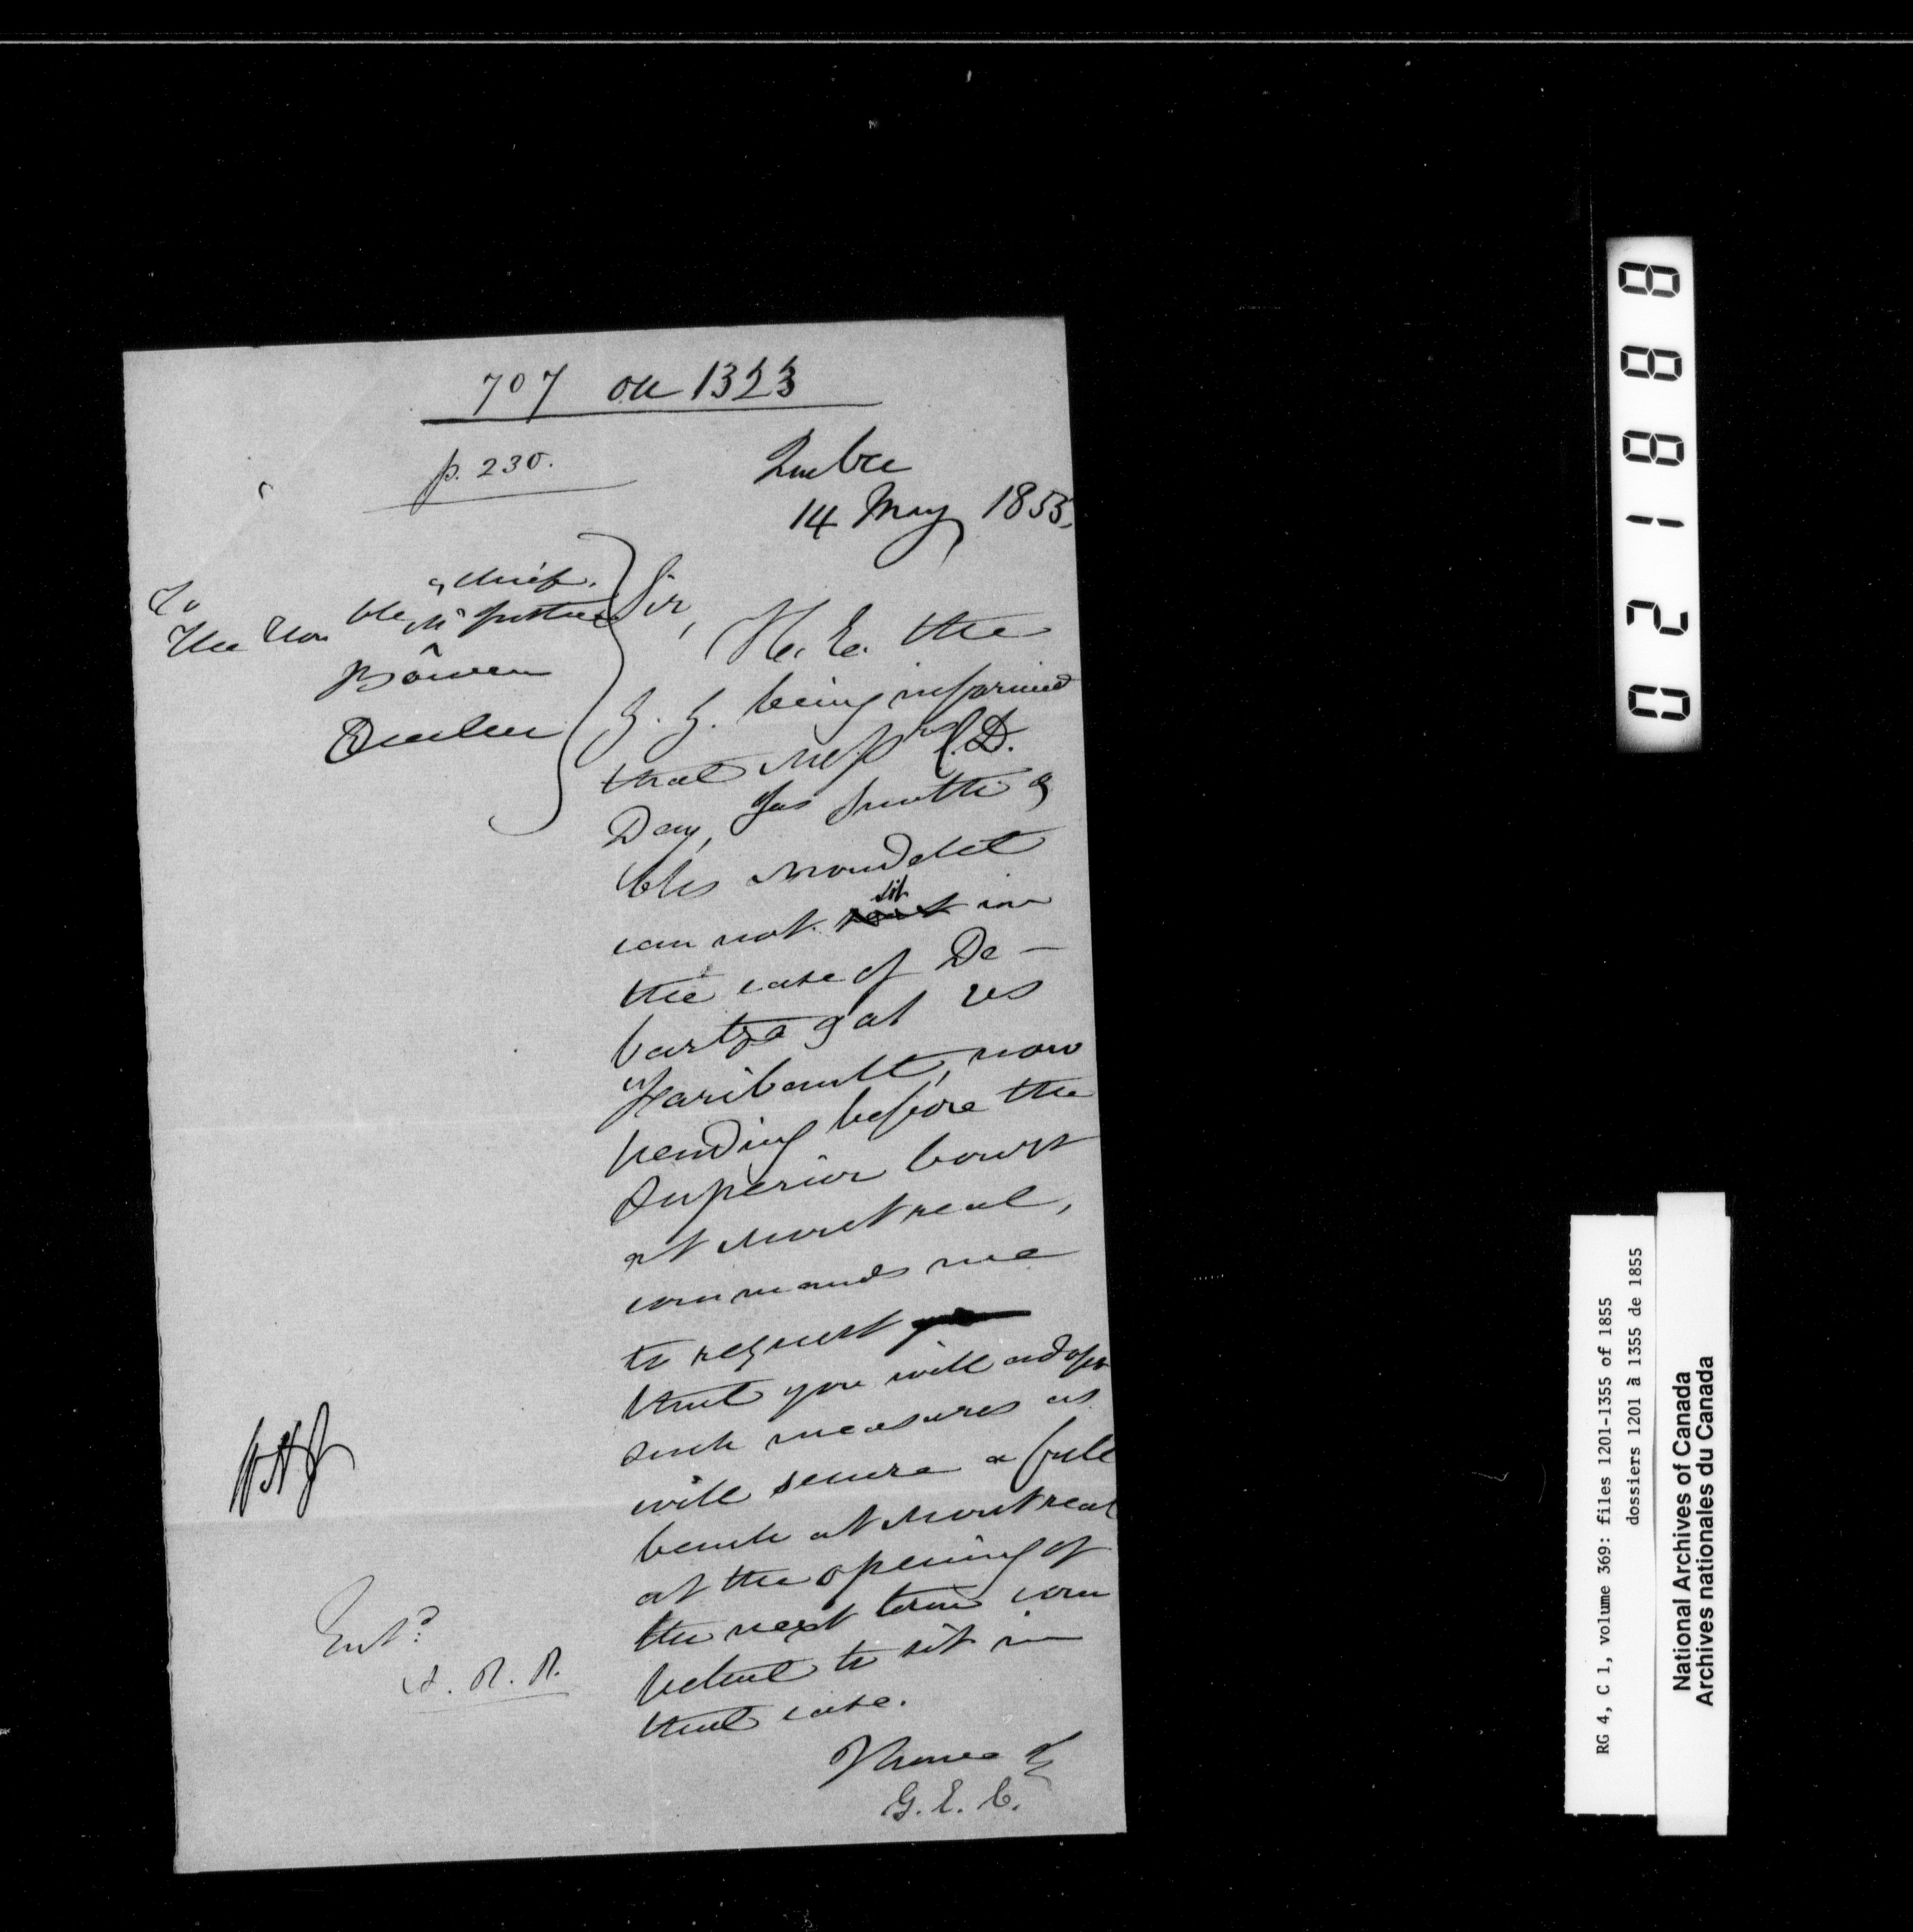 707 on 1323
p. 230.
Quebec
14 May 1855,
To
The Hon'ble Mr Chief Justice
Bowen
Quebec
Sir,
H. E. the
G. G. being informed
that Messrs C. D.
Day, Jas Smith &
Chs Mondelet
can not sit in
the case of De-
bartzg & al vs
Faribault, now
pending before the
Superior Court
at Montreal,
commands me
to request
that you will adopt
such measures as
will secure a full
bench at Montreal
at the opening of
the next term com
petent to sit in
that case.
I have &
G. E. C.
Entd
A. R. R.
88812 0
RG 4, C 1, volume 369: files 1201-1355 of 1855
dossiers 1201 à 1355 de 1855
National Archives of Canada
Archives nationales du Canada